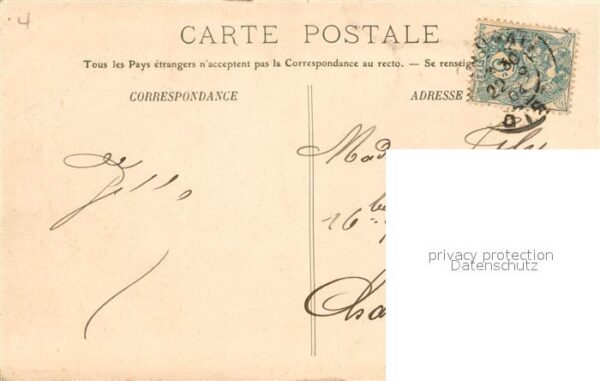 4
CARTE POSTALE
Tous les Pays étrangers n'acceptent pas la Correspondance au recto. — Se renseigne
CORRESPONDANCE
ADRESSE
Mad
16 bis
Cha
privacy protection
Datenschutz